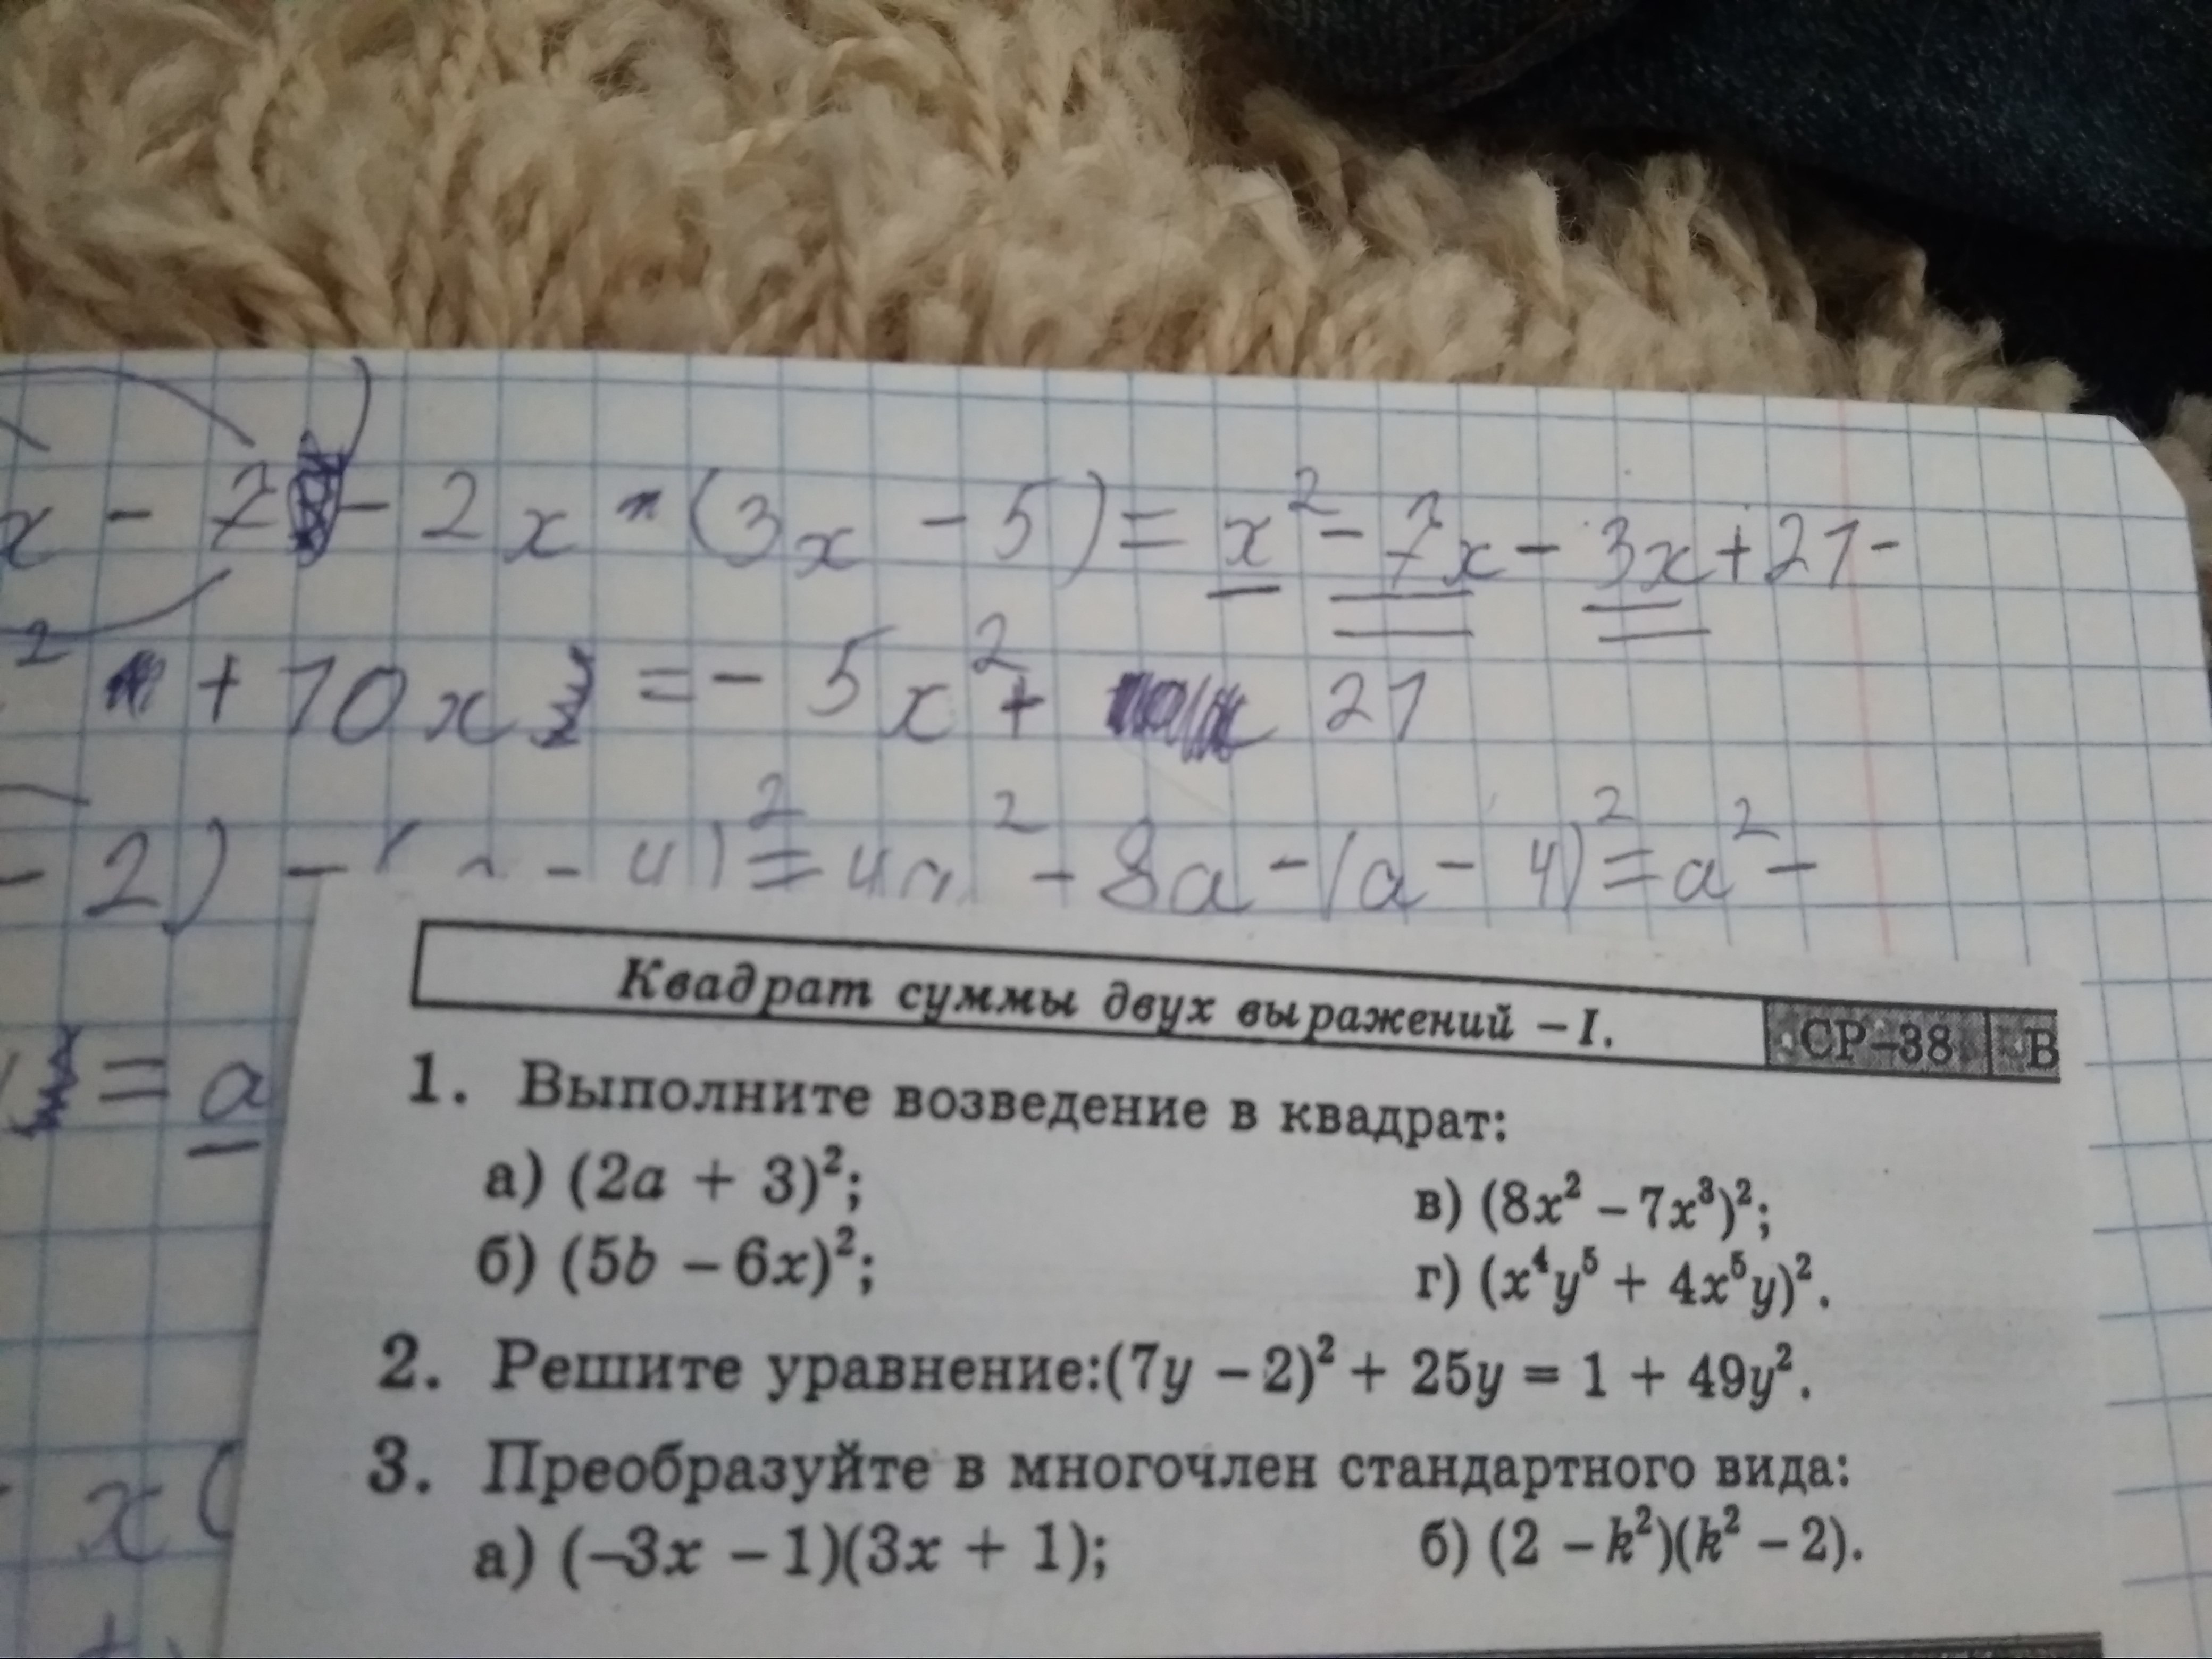 x - 7 - 2x · (3x - 5) = x² - 7x - 3x + 21 -
² + 10x = - 5x² + 21
- 2) - ( - 4)² = 4a² - 8a - (a - 4)² = a² -
= a
Квадрат суммы двух выражений – I. СР–38 В
1. Выполните возведение в квадрат:
а) (2a + 3)²; в) (8x² – 7x³)²;
б) (5b – 6x)²; г) (x⁴y⁵ + 4x⁵y)².
2. Решите уравнение:(7y – 2)² + 25y = 1 + 49y².
3. Преобразуйте в многочлен стандартного вида:
а) (–3x – 1)(3x + 1); б) (2 – k²)(k² – 2).
x (